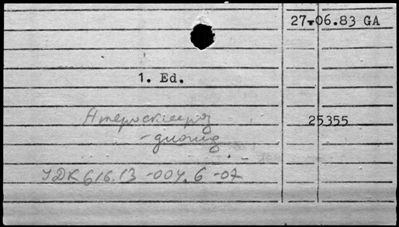 27.06.83 GA
1. Ed.
25355
УДК 616.13-004.6-07